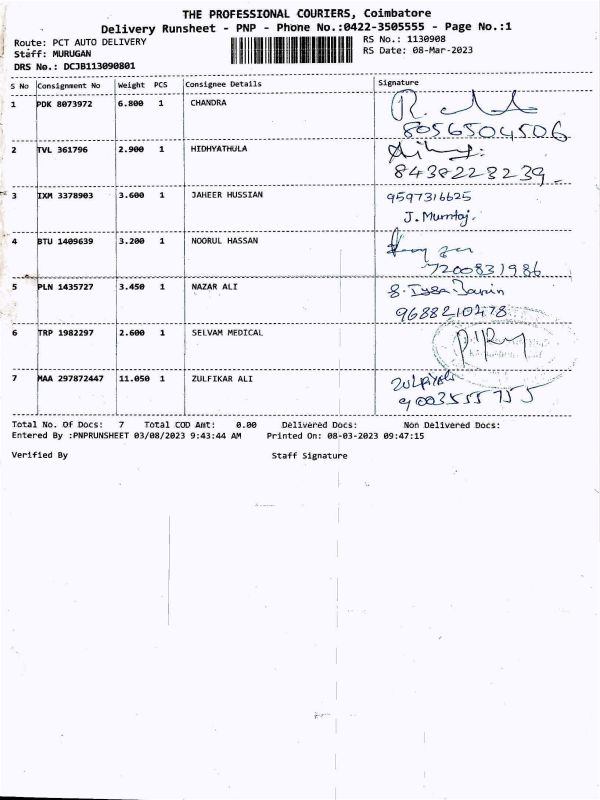 THE PROFESSIONAL COURIERS, Coimbatore
Delivery Runsheet - PNP - Phone No.:0422-3505555 - Page No.:1
Route: PCT AUTO DELIVERY RS No.: 1130908
Staff: MURUGAN RS Date: 08-Mar-2023
DRS No.: DCJB113090801
S No Consignment No Weight PCS Consignee Details Signature
1 PDK 8073972 6.800 1 CHANDRA
8056504506
2 TVL 361796 2.900 1 HIDHYATHULA
8438223239
3 IXM 3378903 3.600 1 JAHEER HUSSIAN 9597316625
J. Mumtaj.
4 BTU 1409639 3.200 1 NOORUL HASSAN
7200831986
5 PLN 1435727 3.450 1 NAZAR ALI
9688210478
6 TRP 1982297 2.600 1 SELVAM MEDICAL
7 MAA 297872447 11.050 1 ZULFIKAR ALI
9003555755
Total No. Of Docs: 7 Total COD Amt: 0.00 Delivered Docs: Non Delivered Docs:
Entered By :PNPRUNSHEET 03/08/2023 9:43:44 AM Printed On: 08-03-2023 09:47:15
Verified By Staff Signature